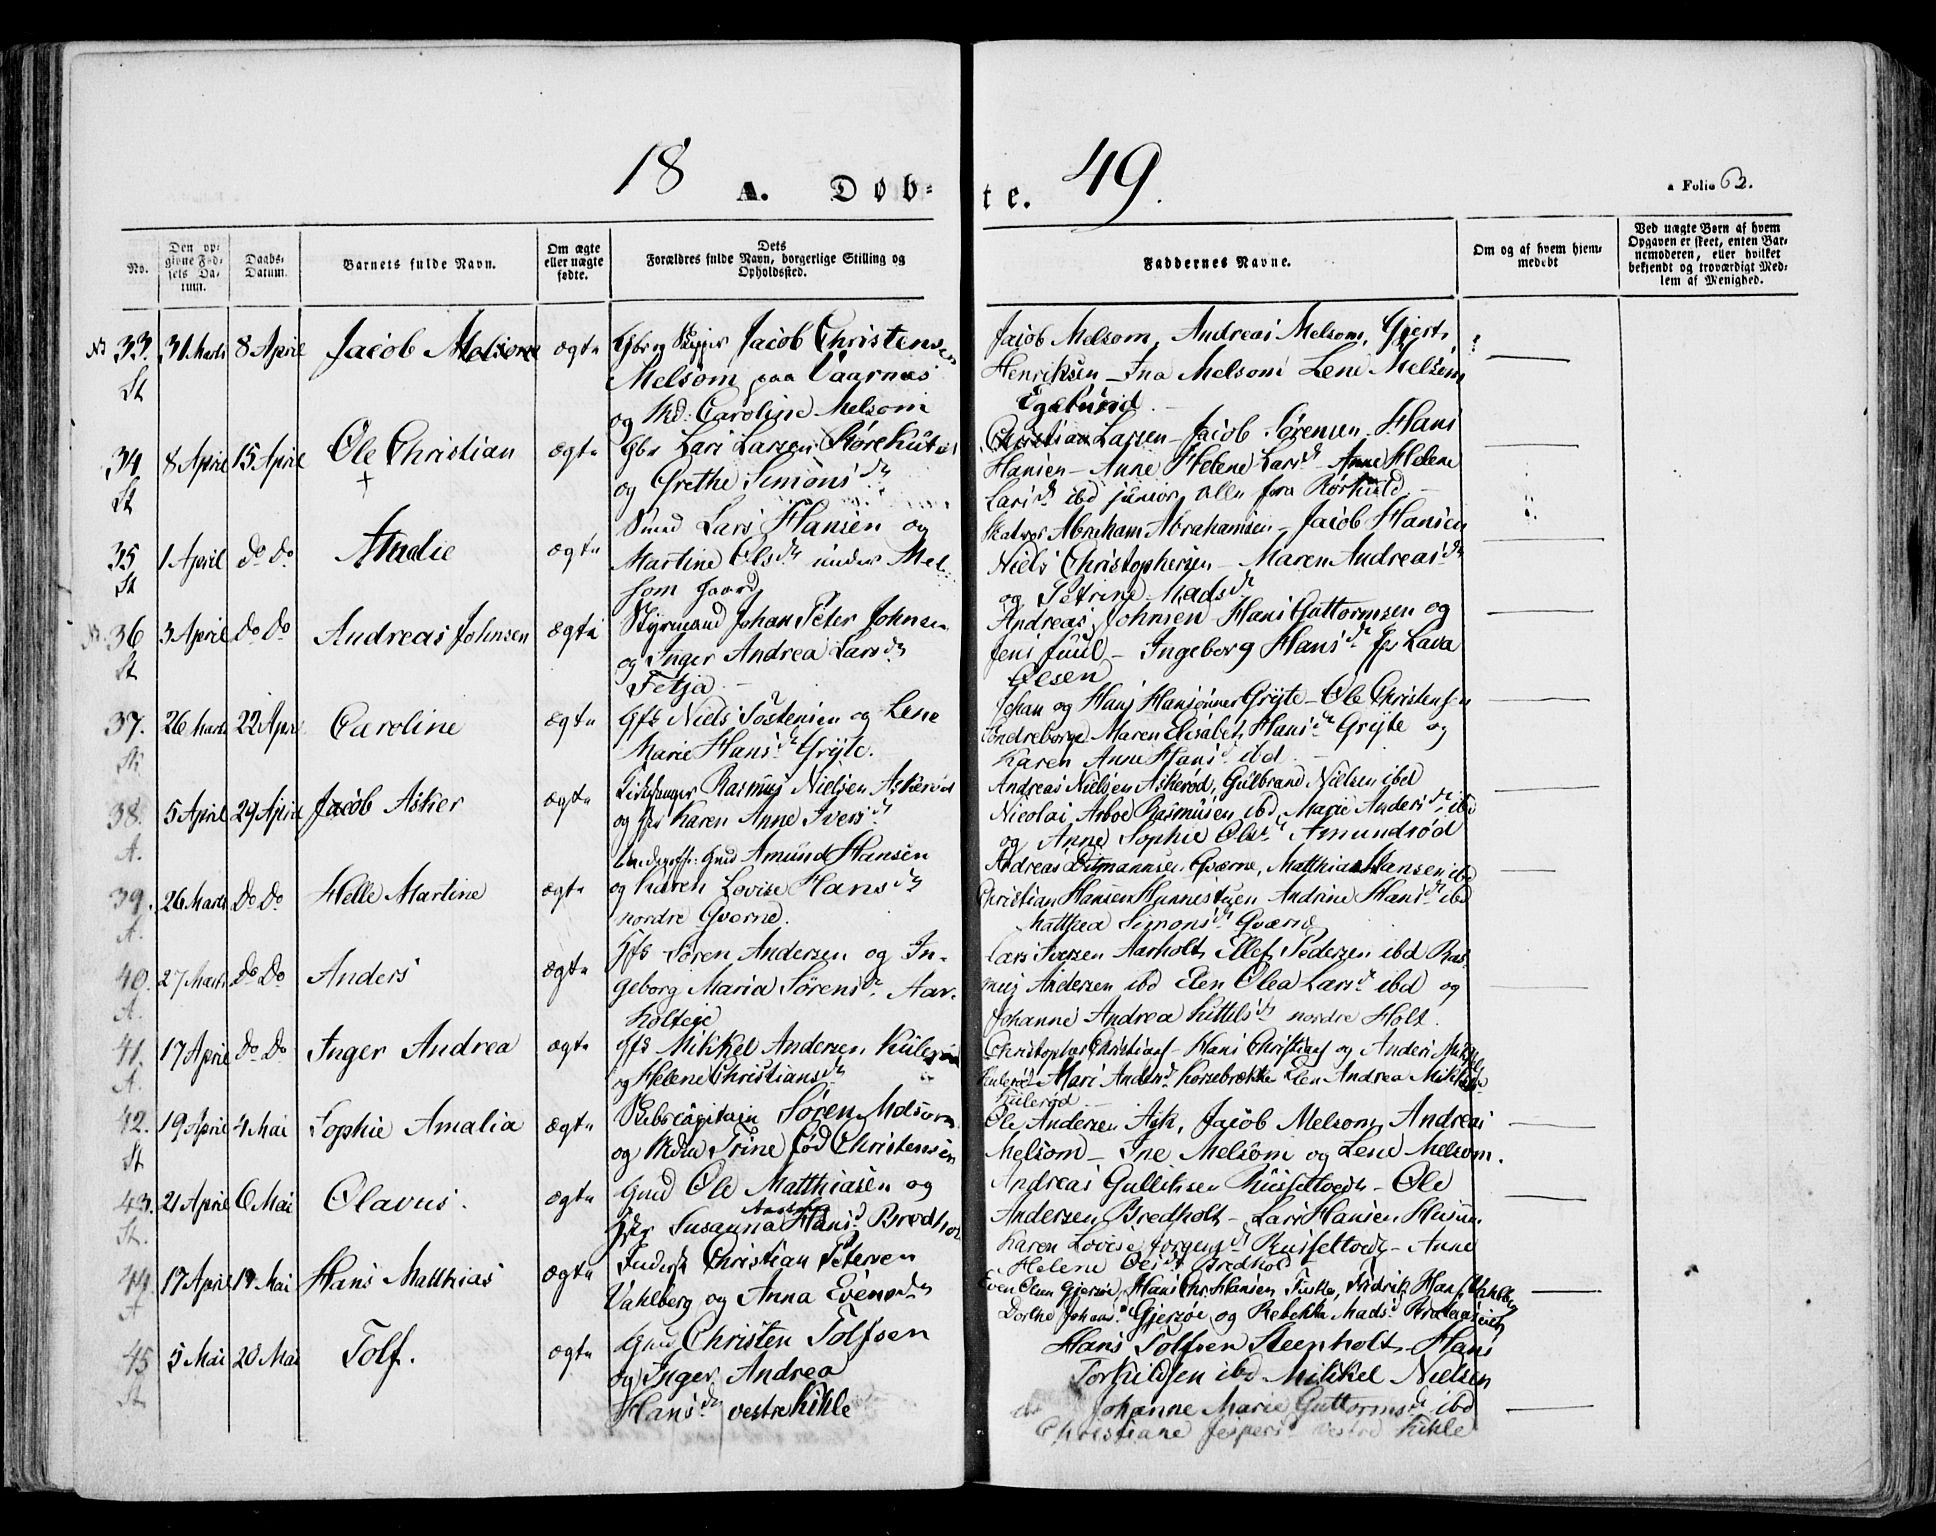 18 A. Døb- te. 49.
a Folio 62.
No.
Den op-
givne Fød-
sels Da-
tum.
Daabs-
Datum.
Barnets fulde Navn.
Om ægte
eller uægte
fødte.
Dets
Forældres fulde Navn, borgerlige Stilling og
Opholdssted.
Faddernes Navne.
Om og af hvem hjem-
medøbt
Ved uægte Børn af hvem
Opgaven er skeet, enten Bar-
nemoderen, eller hvilket
bekjendt og troværdigt Med-
lem af Menighed.
33. St
31 Marts
8 April
Jacob Melsom
ægte
Gbr og Skipper Jacob Christensen
Melsom paa Vaarnæs
og Md: Caroline Melsom
Jacob Melsom, Andreas Melsom, Gjert
Henriksen - Ina Melsom Lene Melsom
34 St
8 April
15 April
Ole Christian
+
ægte
Gbr Lars Larsen
og Grethe Simons d.
Christian Larsen - Jacob Sørensen - Hans
Hansen - Anne Helene Lars d. Anne Helene
Lars d. ibd junior, alle fra
35 St
1 April
Do Do
Amalie
ægte
Lars Hansen og
Martine Ols d. under Mel-
som gaard
Abraham Abrahamsen - Jacob Hansen
Niels Christophersen - Maren Andreas d.
og Petrine Mads d.
36 St
3 April
Do Do
Andreas Johnsen
ægte
Styrmand Johan Peter Johnsen
og Inger Andrea Lars d.
Andreas Johnsen Hans Guttormsen og
Jens Juul - Ingeborg Hans d. Lava
Olsen
37. St
26 Marts
22 April
Caroline
ægte
Niels Tostensen og Lene
Marie Hans d. Gryte.
Johan og Hans Hanssønner Gryte - Ole Christensen
Maren Elisabet Hans d. Gryte og
Karen Anne Hans d. ibd
38. A.
5 April
29 April
Jacob Asker
ægte
Kirkesanger Rasmus Nielsen Askerød
og Karen Anne Ivers d.
Andreas Nielsen Askerød, Gulbrand Nielsen ibd
Nicolai Arboe Rasmusen ibd Marie Anders d. ibd
og Anne Sophie Ols d. Amundrød
39. A.
26 Marts
Do Do
Helle Martine
ægte
Gmd Amund Hansen
og Karen Lovise Hans d.
nordre Qværne.
Andreas Qværne, Matthias Hansen ibd
Christian Hansen Andrine Hans d. ibd
Matthea Simons d. Qværne
40. A.
27 Marts
Do Do
Anders
ægte
Gfs Søren Andersen og In-
geborg Maria Sørens d. Aar-
holteie
Lars Iversen Aarholt, Ellef Pedersen ibd Ras-
mus Andersen ibd Elen Olea Lars d. ibd og
Johanne Andrea Kittils d. nordre Holt.
41. A.
17 April
Do Do
Inger Andrea
ægte
Gfs Mikkel Andersen Kulerød
og Helene Christians d.
Christopher Christians. - Hans Christians. og Anders
Kulerød Mari Anders d. Korsebrække Elen Andrea
Kulerød
42. St
19 April
4 Mai
Sophie Amalia
ægte
Skibscapitain Søren Melsom
og Mdm Trine fød Christensen
Ole Andersen Ask, Jacob Melsom, Andreas
Melsom - Ine Melsom og Lene Melsom.
43. St.
21 April
6 Mai
Olavus.
ægte
Gmd Ole Matthiasen og
Susanna Hans d. Bredholt
Andreas Gulliksen - Ole
Andersen Bredholt - Lars Hansen
Karen Lovise Jørgens d. - Anne
Helene Ols d. Bredholt
44. A
17 April
17 Mai
Hans Matthias
ægte
Christian Petersen
Vahlberg og Anna Evens d.
Even Olsen Gjersøe, Hans Chr. Hansen, Fredrik
Dorthe Johans d. Gjersøe og Rebekka Mads d.
45 St
5 Mai
20 Mai
Tolf.
ægte
Gmd Christen Tolfsen
og Inger Andrea
Hans d. vestre Kihle
Hans Tolfsen Steenholt, Hans
Torkildsen ibd Mikkel Nielsen
Johanne Marie Guttorms d. ibd
Christiane Jespers d. vestre Kihle